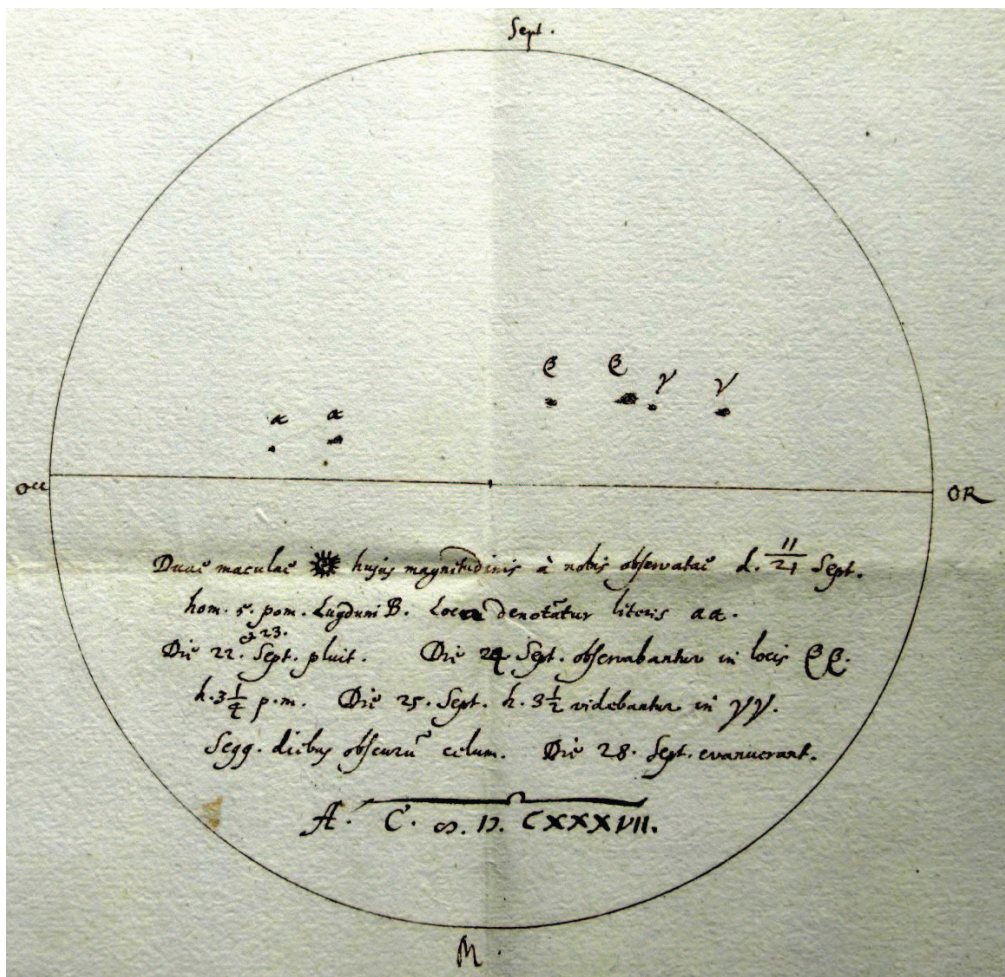 Sept.
β β γ γ
α α
Occ OR
Duae maculae ☀ hujus magnitudinis à nobis observatae d. 11/21 Sept.
hor. 5. pom. Lugduni B. Loca denotātur literis αα.
Die 22. et 23. Sept. pluit. Die 24 Sept. observabantur in locis ββ.
h. 3 1/4 p.m. Die 25. Sept. h. 3 1/2 videbantur in γγ.
Seqq. diebus obscurū celum. Die 28. Sept. evanuerant.
A. C. ∞. D. CXXXVII.
M.